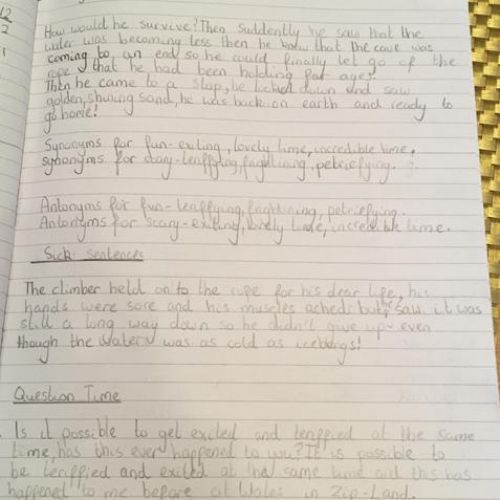 12
2
1
How would he survive? Then Suddenly he saw that the
water was becoming less then he knew that the cave was
coming to an end so he could finally let go of the
rope that he had been holding for ages!
Then he came to a stop, he looked down and saw
golden, shining sand, he was back on earth and ready to
go home!
Synonyms for fun- exiting, lovely time, incredible time.
Synonyms for scary- teriffying, frightining, petriefying.
Antonyms for fun- teriffying, frightining, petriefying.
Antonyms for scary- exiting, lovely time, incredible time.
Sick sentences
The climber held on to the rope for his dear life, his
hands were sore and his muscles ached but he saw it was
still a long way down so he didn't give up- even
though the water was as cold as icebergs!
Question Time
Is it possible to get exited and teriffied at the same
time, has this ever happened to you? It is possible to
be teriffied and exited at the same time and this has
happened to me before at Wales in Zip-Land.